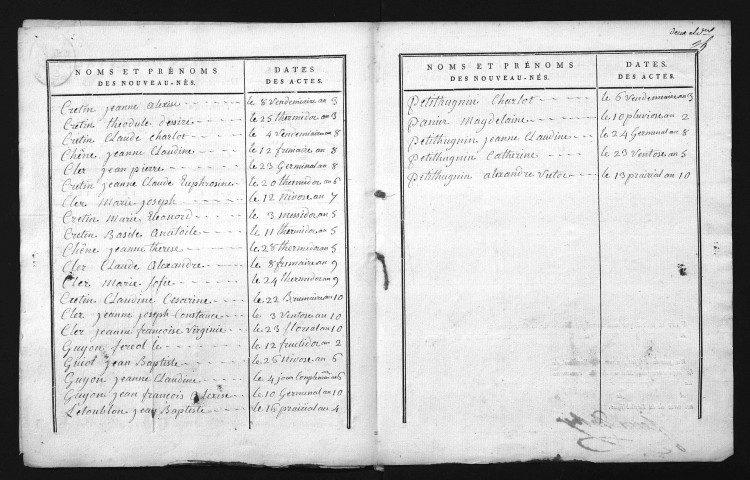 NOMS ET PRÉNOMS DES NOUVEAU-NÉS.
DATES DES ACTES.
Cretin jeanne alexise le 8 vendemiaire an 13
Cretin theodule desire le 25 thermidor an 3
Cretin Claude charlot le 4 vendemiaire an 8
Chêne jeanne Claudine le 12 frimaire an 8
Cler jean pierre le 23 Germinal an 8
Cretin jeanne Claude Euphrosine le 20 thermidor an 6
Cler Marie joseph le 12 Nivose an 7
Cretin Marie Eleonord le 3 messidor an 5
Cretin Basile anatoile le 11 thermidor an 5
Chêne jeanne therese le 28 thermidor an 5
Cler Claude alexandre le 8 frimaire an 9
Cler Marie Sofie le 24 thermidor an 9
Cretin Claudine Cesarine le 22 Brumaire an 10
Cler jeanne joseph Constance le 3 Ventose an 10
Cler jeanne francoise Virginie le 23 floreal an 10
Guyon fereol le le 12 fructidor an 2
Guiol jean Baptiste le 26 Nivose an 6
Guyon jeanne Claudine le 4 jour Complemre an 6
Guyon jean françois alexise le 10 Germinal an 10
L'etoublon jean Baptiste le 16 prairial an 4
NOMS ET PRÉNOMS DES NOUVEAU-NÉS.
DATES DES ACTES.
Petithuguin Charlot le 6 Vendemiaire an 13
Panier Magdelaine le 10 pluviose an 2
Petithuguin jeanne Claudine le 24 Germinal an 8
Petithuguin Catherine le 29 Ventose an 5
Petithuguin alexandre Victor le 13 prairial an 10